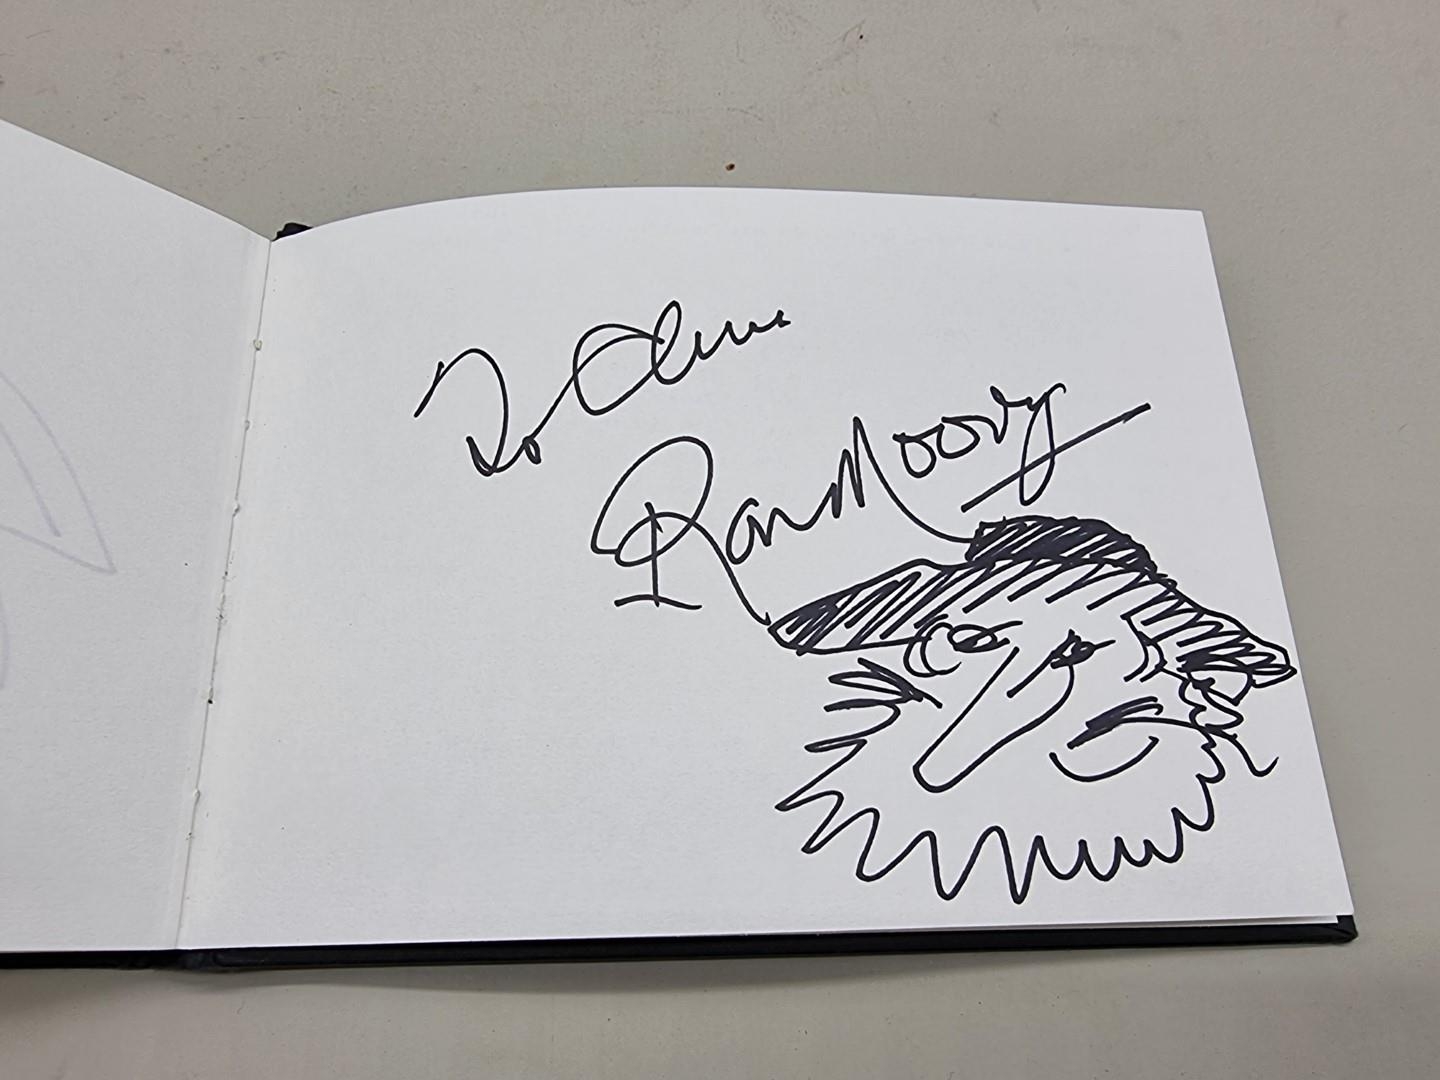 To Clive
Ron Moody